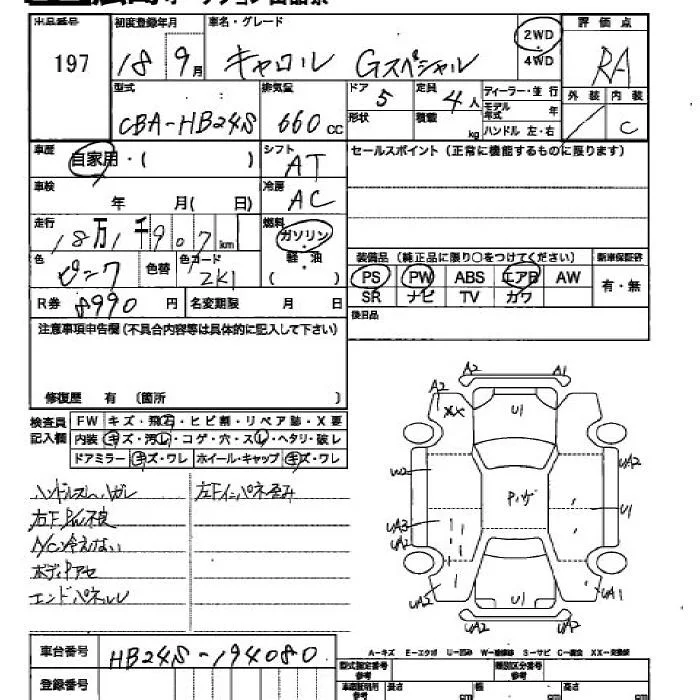 出品番号 初度登録年月 車名・グレード 2WD 評価点
197 18 9月 キャロル Gスペシャル 4WD RA
型式 排気量 ドア 5 定員 4人 ディーラー・並行 外装 内装
CBA-HB24S 660cc 形状 積載 kg モデル年式 年 ハンドル 左・右 C
車歴 自家用・( ) シフト AT セールスポイント(正常に機能するものに限ります)
車検 年 月( 日) 冷房 AC
走行 18万1千907km 燃料 ガソリン・軽油 ( )
色 ピンク 色替 色コード ZK1 装備品(純正品に限り○をつけてください) 新車保証書
PS PW ABS エアB AW 有・無
R券 8990円 名変期限 月 日 SR ナビ TV カワ
注意事項申告欄(不具合内容等は具体的に記入して下さい) 後日品
修復歴 有 〔箇所 〕
検査員記入欄 FW キズ・飛石・ヒビ割・リペア跡・X要
内装 キズ・汚レ・コゲ・穴・スレ・ヘタリ・破レ
ドアミラー キズ・ワレ ホイール・キャップ キズ・ワレ
ハンドルスレハガレ 左Fインパネ歪み
右F P/W不良
A/C冷えない
ボディPアセ
エンドパネルU
A2 A1
A2 XX U1
W2 Pハゲ UA2
U1
UA3
UA2
UA2 U1 UA1
UA2 UA2
車台番号 HB24S-194080
A-キズ E-エクボ U-凹み W-補修跡 S-サビ C-腐食 XX-交換跡
登録番号 型式指定番号 参考 類別区分番号 参考
車庫証明用 参考 長さ cm 幅 cm 高さ cm